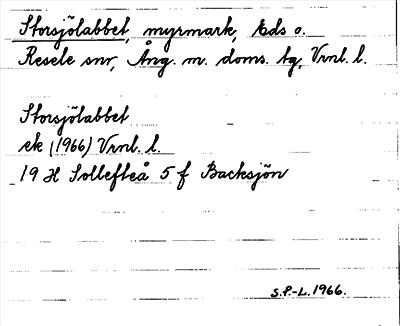 Storsjölabbet, myrmark, Eds o.
Resele snr, Ång. m. doms. tg, Vrnl. l.
Storsjölabbet
ek (1966) Vrnl. l.
19 H Sollefteå 5 f Backsjön
S.P.-L. 1966.